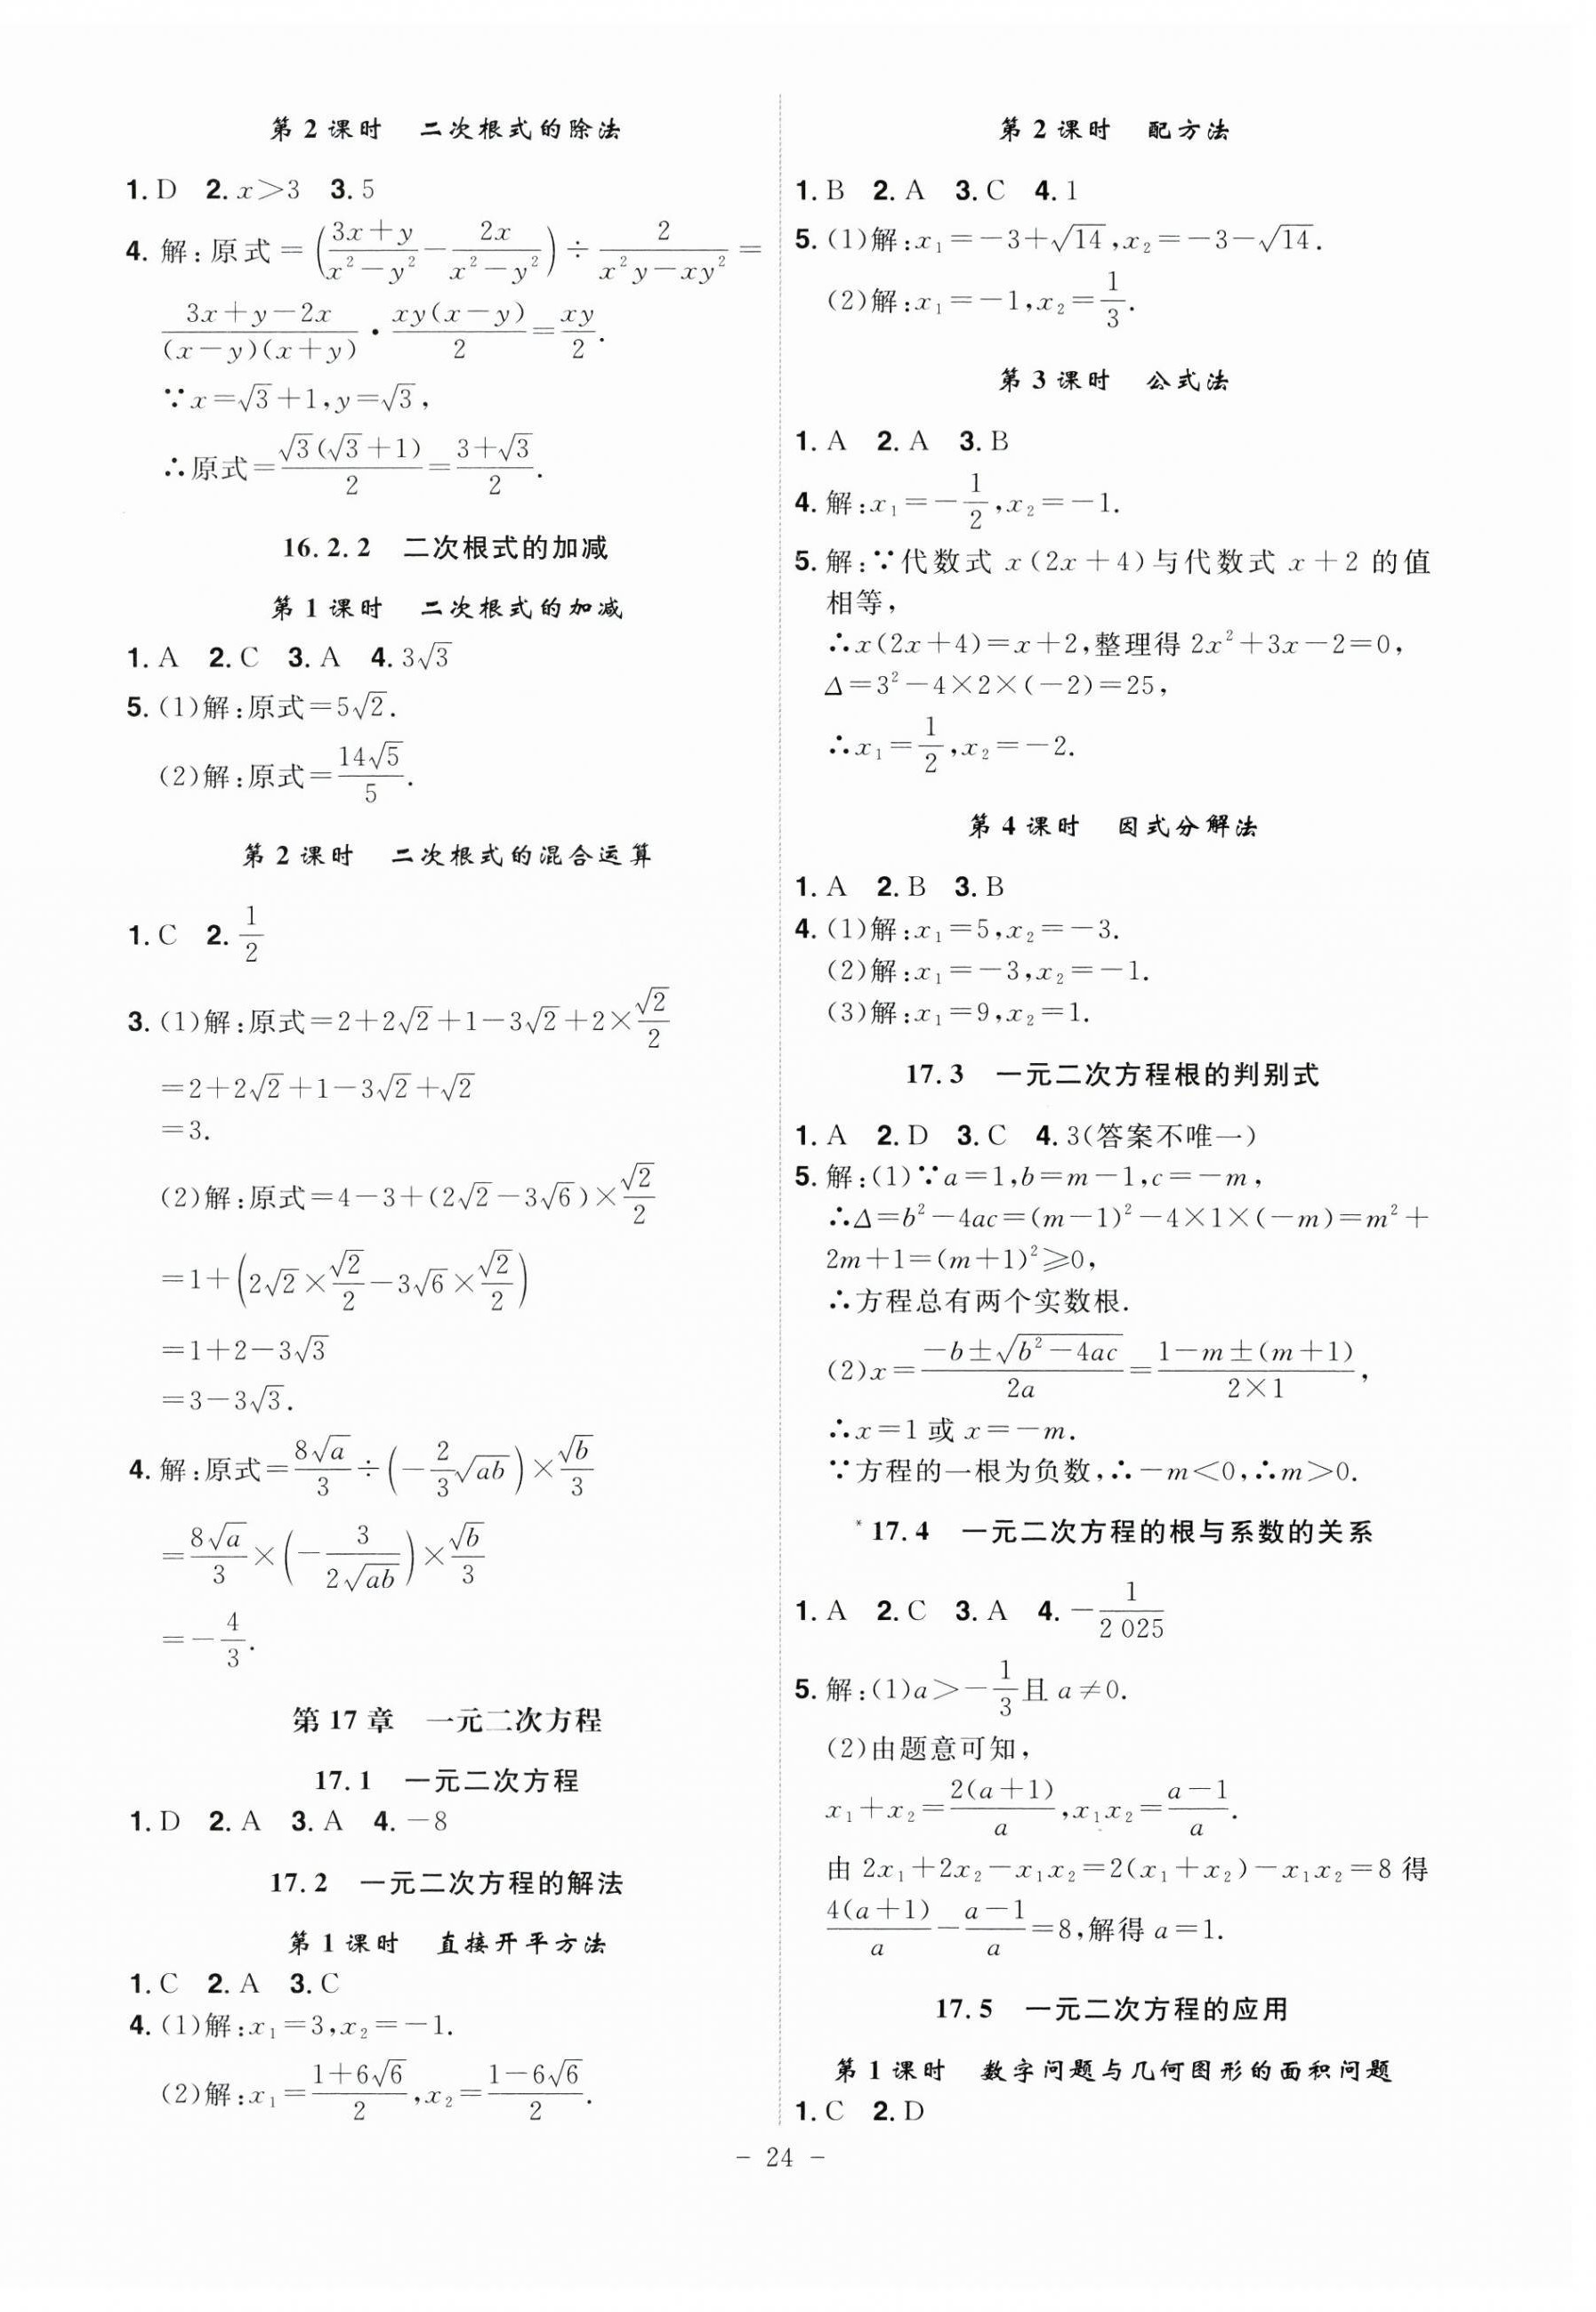 第2课时 二次根式的除法
1. D 2. x>3 3. 5
4. 解:原式=((3x+y)/(x²-y²)-2x/(x²-y²))÷2/(x²y-xy²)=
(3x+y-2x)/((x-y)(x+y))·xy(x-y)/2=xy/2.
∵x=√3+1,y=√3,
∴原式=√3(√3+1)/2=(3+√3)/2.
16.2.2 二次根式的加减
第1课时 二次根式的加减
1. A 2. C 3. A 4. 3√3
5. (1)解:原式=5√2.
(2)解:原式=14√5/5.
第2课时 二次根式的混合运算
1. C 2. 1/2
3. (1)解:原式=2+2√2+1-3√2+2×√2/2
=2+2√2+1-3√2+√2
=3.
(2)解:原式=4-3+(2√2-3√6)×√2/2
=1+(2√2×√2/2-3√6×√2/2)
=1+2-3√3
=3-3√3.
4. 解:原式=8√a/3÷(-2/3√ab)×√b/3
=8√a/3×(-3/(2√ab))×√b/3
=-4/3.
第17章 一元二次方程
17.1 一元二次方程
1. D 2. A 3. A 4. -8
17.2 一元二次方程的解法
第1课时 直接开平方法
1. C 2. A 3. C
4. (1)解:x₁=3,x₂=-1.
(2)解:x₁=(1+6√6)/2,x₂=(1-6√6)/2.
第2课时 配方法
1. B 2. A 3. C 4. 1
5. (1)解:x₁=-3+√14,x₂=-3-√14.
(2)解:x₁=-1,x₂=1/3.
第3课时 公式法
1. A 2. A 3. B
4. 解:x₁=-1/2,x₂=-1.
5. 解:∵代数式 x(2x+4)与代数式 x+2 的值
相等,
∴x(2x+4)=x+2,整理得 2x²+3x-2=0,
Δ=3²-4×2×(-2)=25,
∴x₁=1/2,x₂=-2.
第4课时 因式分解法
1. A 2. B 3. B
4. (1)解:x₁=5,x₂=-3.
(2)解:x₁=-3,x₂=-1.
(3)解:x₁=9,x₂=1.
17.3 一元二次方程根的判别式
1. A 2. D 3. C 4. 3(答案不唯一)
5. 解:(1)∵a=1,b=m-1,c=-m,
∴Δ=b²-4ac=(m-1)²-4×1×(-m)=m²+
2m+1=(m+1)²≥0,
∴方程总有两个实数根.
(2)x=(-b±√(b²-4ac))/2a=(1-m±(m+1))/(2×1),
∴x=1 或 x=-m.
∵方程的一根为负数,∴-m<0,∴m>0.
*17.4 一元二次方程的根与系数的关系
1. A 2. C 3. A 4. -1/2 025
5. 解:(1)a>-1/3且 a≠0.
(2)由题意可知,
x₁+x₂=2(a+1)/a,x₁x₂=(a-1)/a.
由 2x₁+2x₂-x₁x₂=2(x₁+x₂)-x₁x₂=8 得
4(a+1)/a-(a-1)/a=8,解得 a=1.
17.5 一元二次方程的应用
第1课时 数字问题与几何图形的面积问题
1. C 2. D
- 24 -